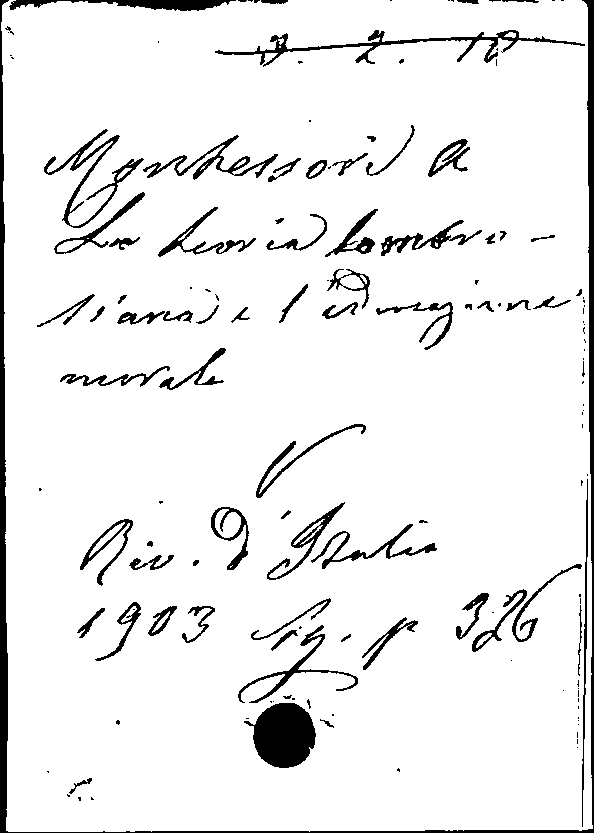 3. 2. 10
Montessori A
La teoria lombro-
siana e l'educazione
morale
V
Riv. d'Italia
1903 Ag. p 326